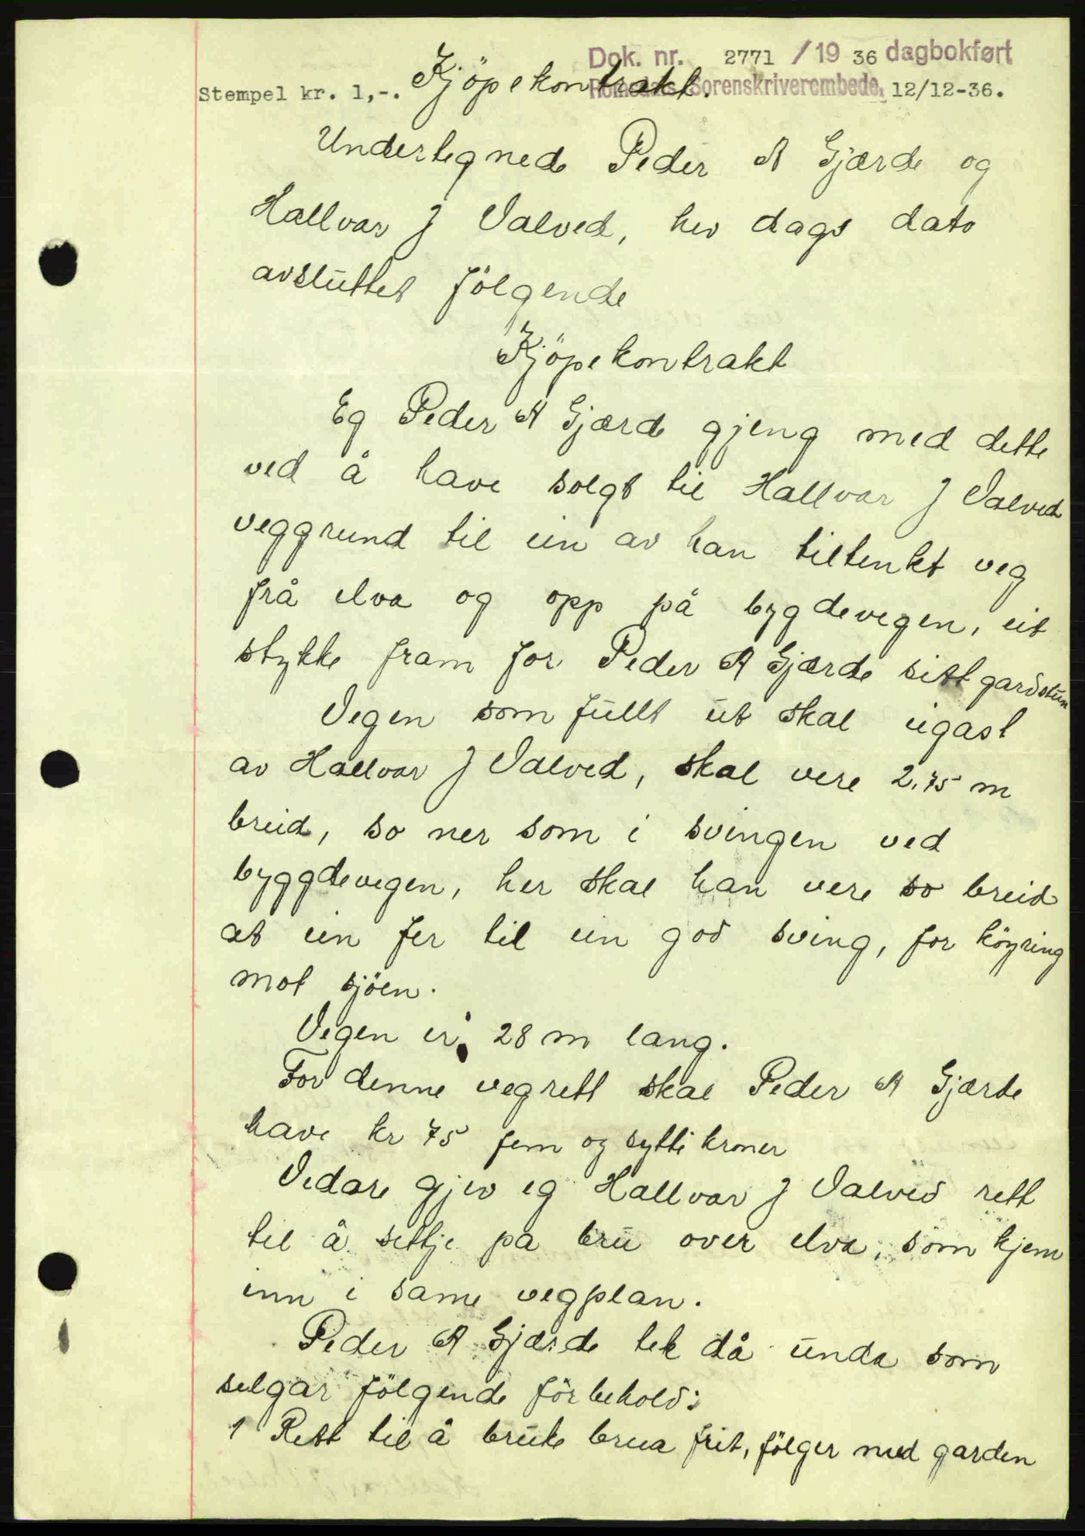 Dok. nr. 2771 / 19 36 dagbokført
Stempel kr. 1,-. Kjöpekontrakt. Romsdals Sorenskriverembede, 12/12-36.
Undertegnede Peder A Gjærde og
Hallvar J Valved, hev dags dato
avsluttet fölgende
Kjöpekontrakt
Eg Peder A Gjærde gjeng med dette
ved å have solgt til Hallvar J Valved
veggrund til ein av han tiltenkt veg
frå elva og opp på bygdevegen, eit
stykke fram for Peder A Gjærde sitt gardstun
Vegen som fullt ut skal eigast
av Hallvar J Valved, skal vere 2,75 m
breid, so ner som i svingen ved
byggdevegen, her skal han vere so breid
at ein fer til ein god sving, for köyring
mot sjöen.
Vegen er 28 m lang.
For denne vegrett skal Peder A Gjærde
have kr 75 fem og sytti kroner
Vedare gjev eg Hallvar J Valved rett
til å settje på bru over elva, som kjem
inn i same vegplan.
Peder A Gjærde tek då unda som
selgar fölgende förbehold:
1 Rett til å bruke brua frit, fölger med garden